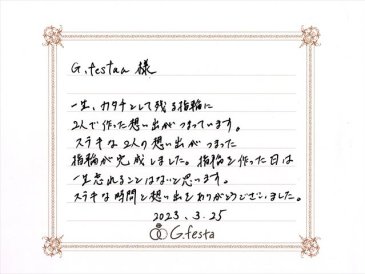 G.festaa 様
一生、カタチとして残る指輪に
2人で作った想い出がつまっています。
ステキな2人の想い出がつまった
指輪が完成しました。指輪を作った日は
一生忘れることはないと思います。
ステキな時間と想い出をありがとうございました。
2023.3.25
G.festa